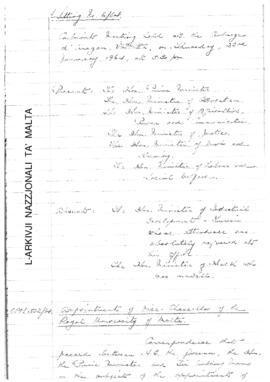 Sitting No. 4/64.
Cabinet Meeting held at the Auberge
d'Aragon, Valletta, on Thursday, 23rd
January, 1964, at 5.30 p.m.
Present: The Hon. Prime Minister.
The Hon. Minister of Education.
The Hon. Minister of
Power and Communications.
The Hon. Minister of Justice.
The Hon. Minister of Works and
Housing.
The Hon. Minister of Labour and
Social Welfare.
Absent: The Hon. Minister of Industrial
Development & Tourism
whose attendance was
absolutely required at
his office.
The Hon. Minister of Health who
was
Appointment of Vice-Chancellor of the
Royal University of Malta.
Correspondence that
passed between H.E. the Governor, the Hon.
the Prime Minister and Sir
on the subject of the appointment of
L-ARKIVJI NAZZJONALI TA' MALTA